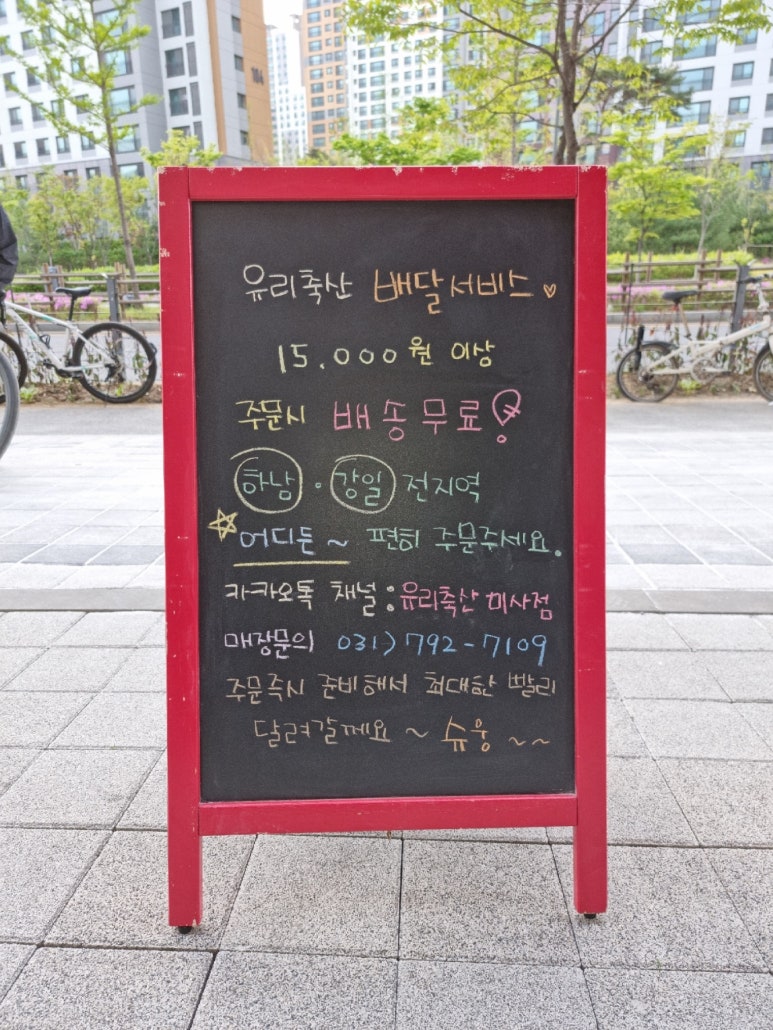 유리축산 배달서비스♡
15.000원 이상
주문시 배송무료!
하남 · 강일 전지역
☆어디든~ 편히 주문주세요.
카카오톡 채널:유리축산 미사점
매장문의 031)792-7109
주문즉시 준비해서 최대한 빨리
달려갈께요~ 슈웅~~